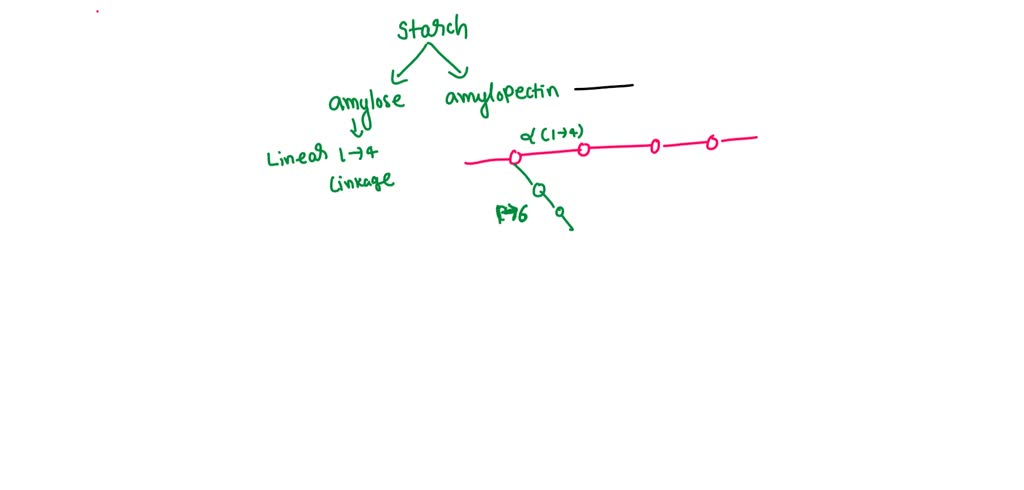 Starch
amylose amylopectin
α (1→4)
Linear 1→4
Linkage
1→6